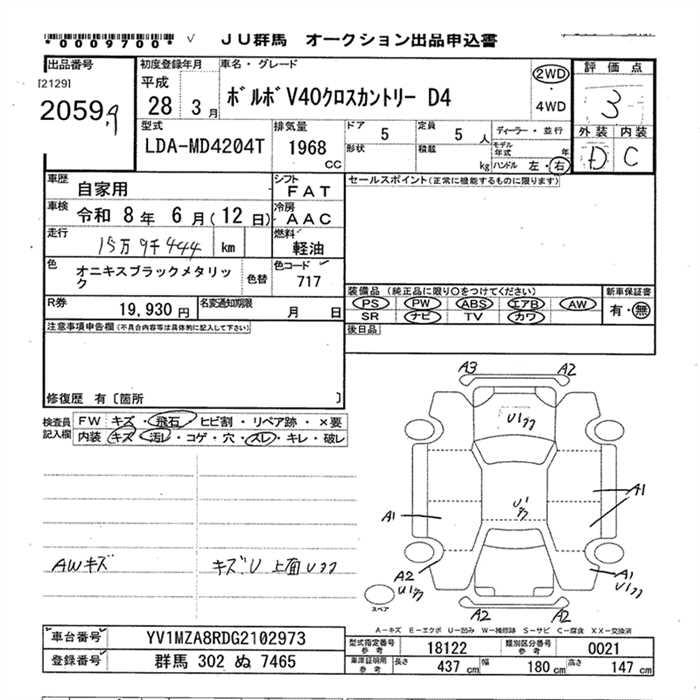 *0009700* ✓ JU群馬 オークション出品申込書
出品番号 初度登録年月 車名・グレード 評価点
[2129] 平成
2059 28 3月 ボルボV40クロスカントリー D4 2WD ・ 4WD 3
型式 排気量 ドア 5 定員 5 人 ディーラー・並行 外装 内装
LDA-MD4204T 1968 cc 形状 積載 kg モデル年式 年 ハンドル 左・右 D C
車歴 自家用 シフト FAT セールスポイント(正常に機能するものに限ります)
車検 令和 8年 6月(12日) 冷房 AAC
走行 15万9千444 km 燃料 軽油
色 オニキスブラックメタリック 色替 色コード 717
装備品(純正品に限り○をつけてください) 新車保証書
R券 19,930円 名変通知期限 月 日 PS PW ABS エアB AW 有・無
SR ナビ TV カワ
注意事項申告欄(不具合内容等は具体的に記入して下さい) 後日品
修復歴 有〔箇所 〕
検査員記入欄 FW キズ・飛石・ヒビ割・リペア跡・×要
内装 キズ・汚レ・コゲ・穴・スレ・キレ・破レ
A3 A2
U1
U1
A1 A1
A2 U1
A1 U
A2 A2
スペア
AWキズ キズ・U 上面U
A-キズ E-エクボ U-凹み W-補修跡 S-サビ C-腐食 XX-交換済
車台番号 YV1MZA8RDG2102973 型式指定番号 参考 18122 類別区分番号 参考 0021
登録番号 群馬 302 ぬ 7465 車庫証明用 参考 長さ 437 cm 幅 180 cm 高さ 147 cm